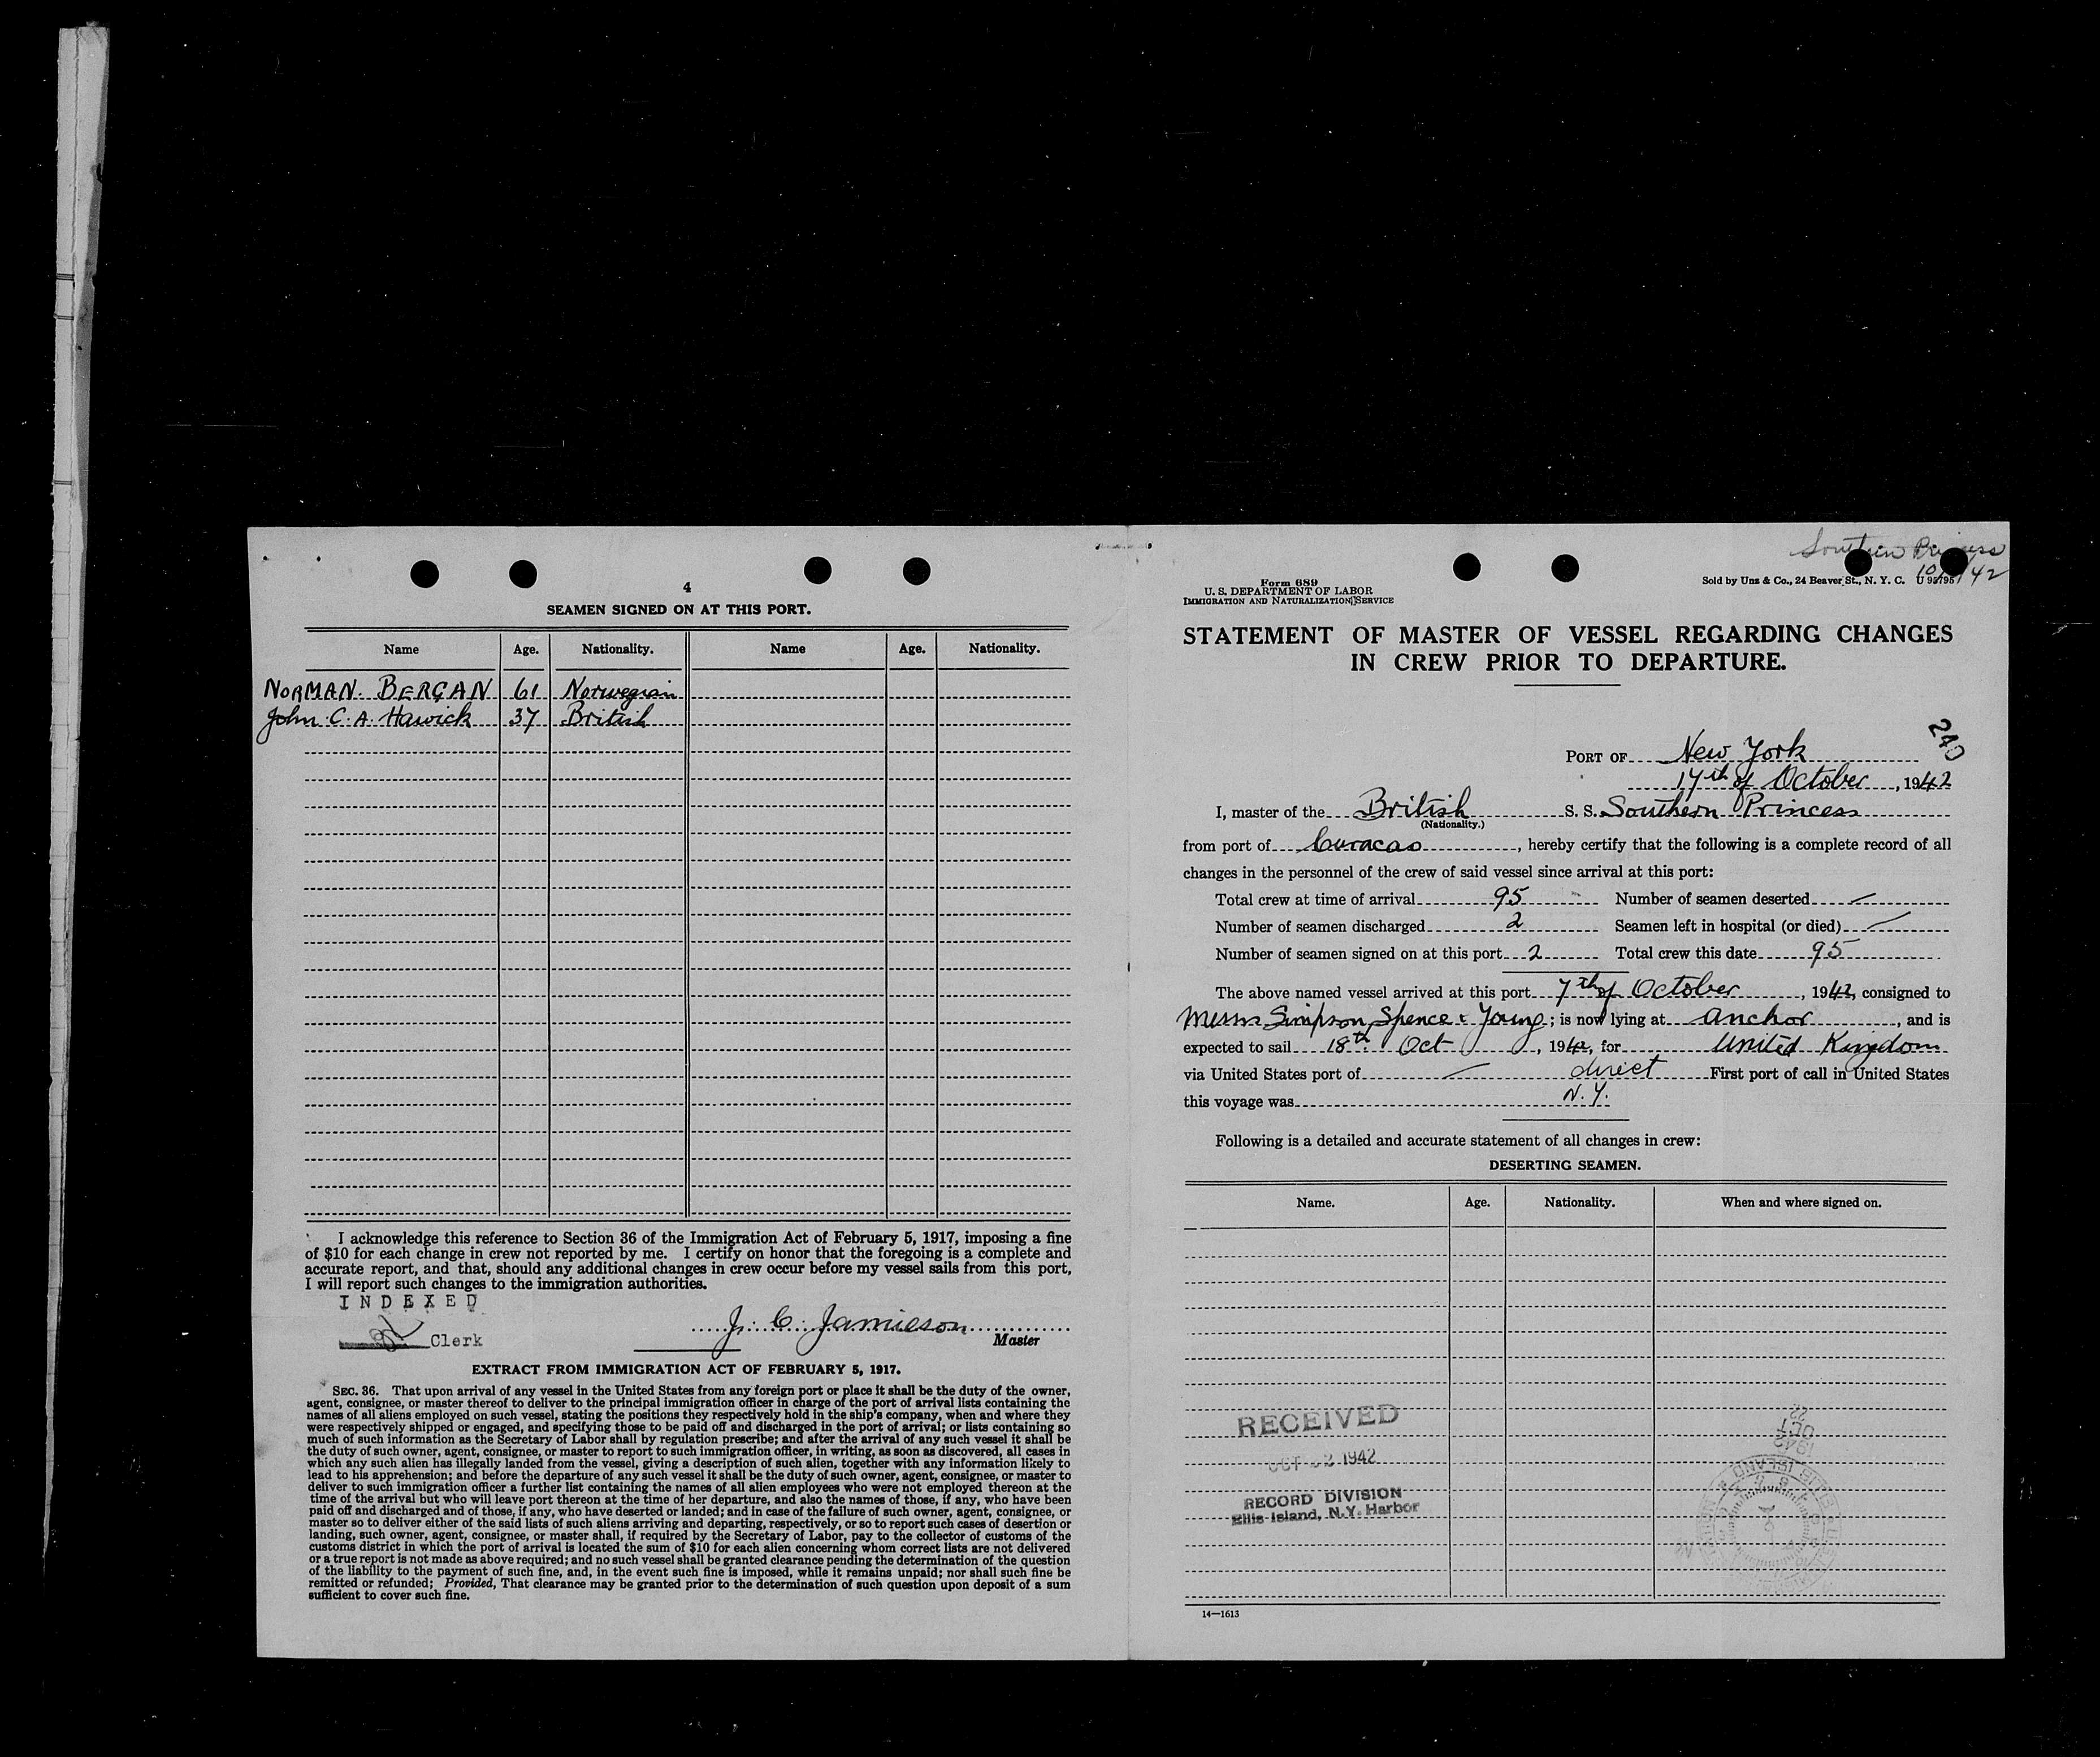 4
SEAMEN SIGNED ON AT THIS PORT.
Name Age. Nationality. Name Age. Nationality.
NORMAN. BERGAN 61 Norwegian
John. C. A. Hawick 37 British
I acknowledge this reference to Section 36 of the Immigration Act of February 5, 1917, imposing a fine
of $10 for each change in crew not reported by me. I certify on honor that the foregoing is a complete and
accurate report, and that, should any additional changes in crew occur before my vessel sails from this port,
I will report such changes to the immigration authorities.
INDEXED
Clerk
J. C. Jamieson
Master
EXTRACT FROM IMMIGRATION ACT OF FEBRUARY 5, 1917.
SEC. 36. That upon arrival of any vessel in the United States from any foreign port or place it shall be the duty of the owner,
agent, consignee, or master thereof to deliver to the principal immigration officer in charge of the port of arrival lists containing the
names of all aliens employed on such vessel, stating the positions they respectively hold in the ship's company, when and where they
were respectively shipped or engaged, and specifying those to be paid off and discharged in the port of arrival; or lists containing so
much of such information as the Secretary of Labor shall by regulation prescribe; and after the arrival of any such vessel it shall be
the duty of such owner, agent, consignee, or master to report to such immigration officer, in writing, as soon as discovered, all cases in
which any such alien has illegally landed from the vessel, giving a description of such alien, together with any information likely to
lead to his apprehension; and before the departure of any such vessel it shall be the duty of such owner, agent, consignee, or master to
deliver to such immigration officer a further list containing the names of all alien employees who were not employed thereon at the
time of the arrival but who will leave port thereon at the time of her departure, and also the names of those, if any, who have been
paid off and discharged and of those, if any, who have deserted or landed; and in case of the failure of such owner, agent, consignee, or
master so to deliver either of the said lists of such aliens arriving and departing, respectively, or so to report such cases of desertion or
landing, such owner, agent, consignee, or master shall, if required by the Secretary of Labor, pay to the collector of customs of the
customs district in which the port of arrival is located the sum of $10 for each alien concerning whom correct lists are not delivered
or a true report is not made as above required; and no such vessel shall be granted clearance pending the determination of the question
of the liability to the payment of such fine, and, in the event such fine is imposed, while it remains unpaid; nor shall such fine be
remitted or refunded; Provided, That clearance may be granted prior to the determination of such question upon deposit of a sum
sufficient to cover such fine.
Southern Princess
Form 689
U. S. DEPARTMENT OF LABOR
IMMIGRATION AND NATURALIZATION SERVICE
Sold by Unz & Co., 24 Beaver St., N. Y. C. U 95795
STATEMENT OF MASTER OF VESSEL REGARDING CHANGES
IN CREW PRIOR TO DEPARTURE.
240
PORT OF New York
17th of October, 1942
I, master of the British S. S. Southern Princess
(Nationality.)
from port of Curacao, hereby certify that the following is a complete record of all
changes in the personnel of the crew of said vessel since arrival at this port:
Total crew at time of arrival 95 Number of seamen deserted —
Number of seamen discharged 2 Seamen left in hospital (or died) —
Number of seamen signed on at this port 2 Total crew this date 95
The above named vessel arrived at this port 7th of October, 1942, consigned to
Messrs Simpson, Spence & Young; is now lying at anchor, and is
expected to sail 18th Oct, 1942, for United Kingdom
via United States port of — direct First port of call in United States
this voyage was N.Y.
Following is a detailed and accurate statement of all changes in crew:
DESERTING SEAMEN.
Name. Age. Nationality. When and where signed on.
RECEIVED
OCT 22 1942
RECORD DIVISION
Ellis Island, N.Y. Harbor
22
OCT
1942
14—1613